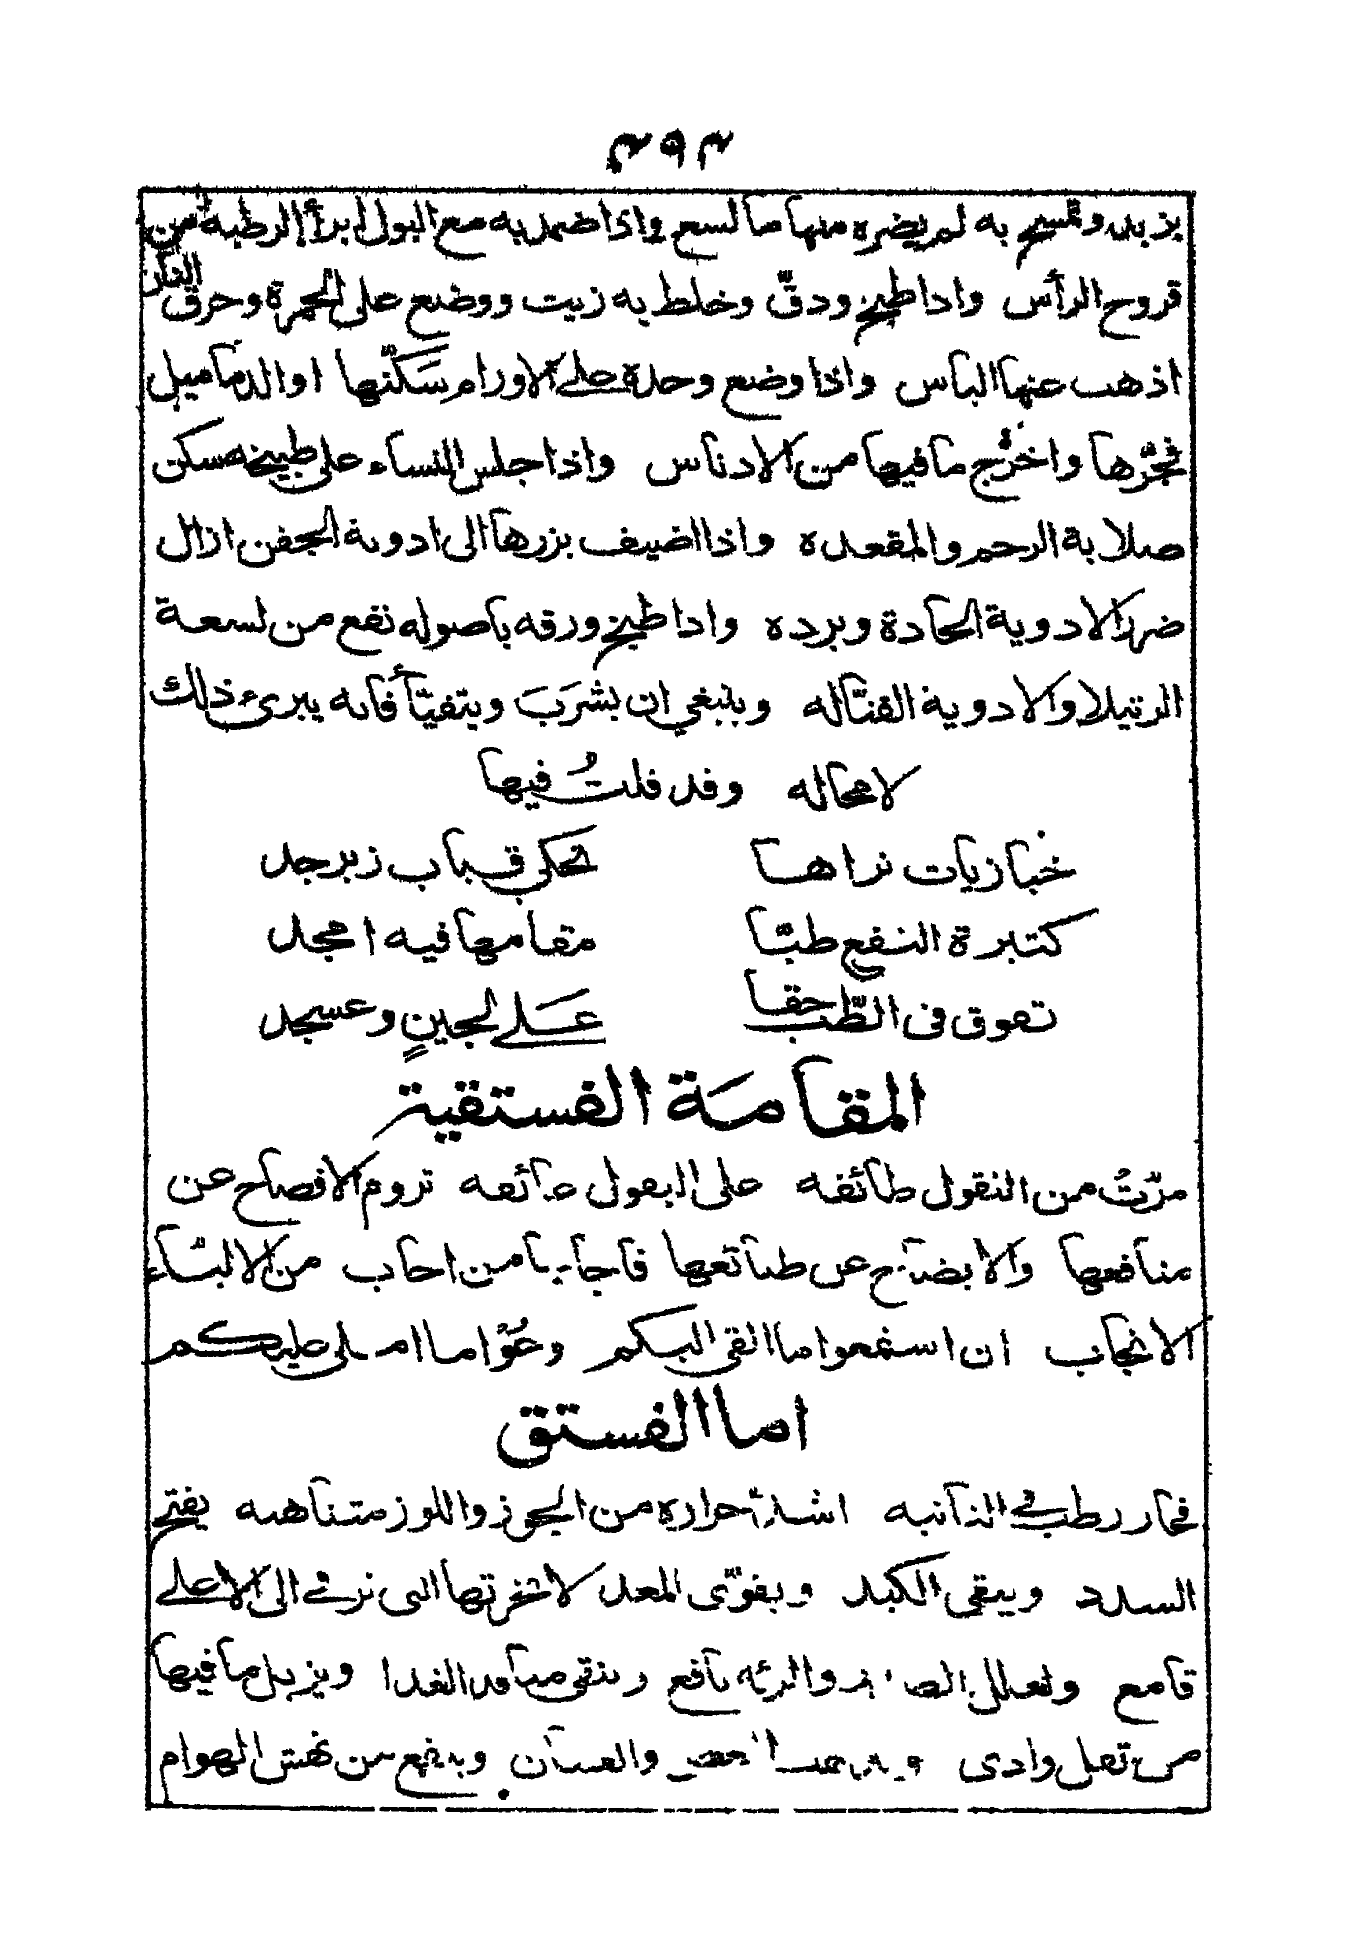 بزيت وتمسح به لم يضره منها ما لسع واذا ضمد به مع البول ابرأ الرطبة من
قروح الرأس واذا طبخ ودقّ وخلط به زيت ووضع على الجمرة وحرق النار
اذهب عنها الباس واذا وضع وحده على الاورام سَكّنها او الدماميل
فجّرها واخرَج ما فيها من الادناس واذا جلس النساء على طبيخه سكن
صلابة الرحم والمقعده واذا اضيف بزرها الى ادوية الجفن ازال
ضرر الادوية الحادة وبرده واذا طبخ ورقه باصوله نفع من لسعة
الرتيلا والادوية القتّاله وينبغي ان يشرَبَ ويتقيّأ فانه يبرئ ذلك
لا محاله وقد قلتُ فيها
خبازيات تراها تحكى قباب زبرجد
كثيرة النفع طبّا مقامها فيه امجد
تفوق فى الطّب حقا على لجينٍ وعسجد
المقامة الفستقية
مرّت من النقول طائفه على البقول تروم الافصاح عن
منافعها والايضاح عن طبائعها فاجابها من اجاب من الالبّاء
الانجاب ان استمعوا ما القى اليكم وعُوْا ما املى عليكم
اما الفستق
فحار رطب فى الثانيه اشد حرارة من الجوز واللوز متناهيه يفتح
السدد وينقى الكبد ويقوّى المعد لابخرتها التى ترقى الى الاعلى
قامع ولعلل الصدر والرئه نافع وينقى منافذ الغذا ويزيل ما فيها
من ثقل واذى والغثيان وينفع من نهش الهوام